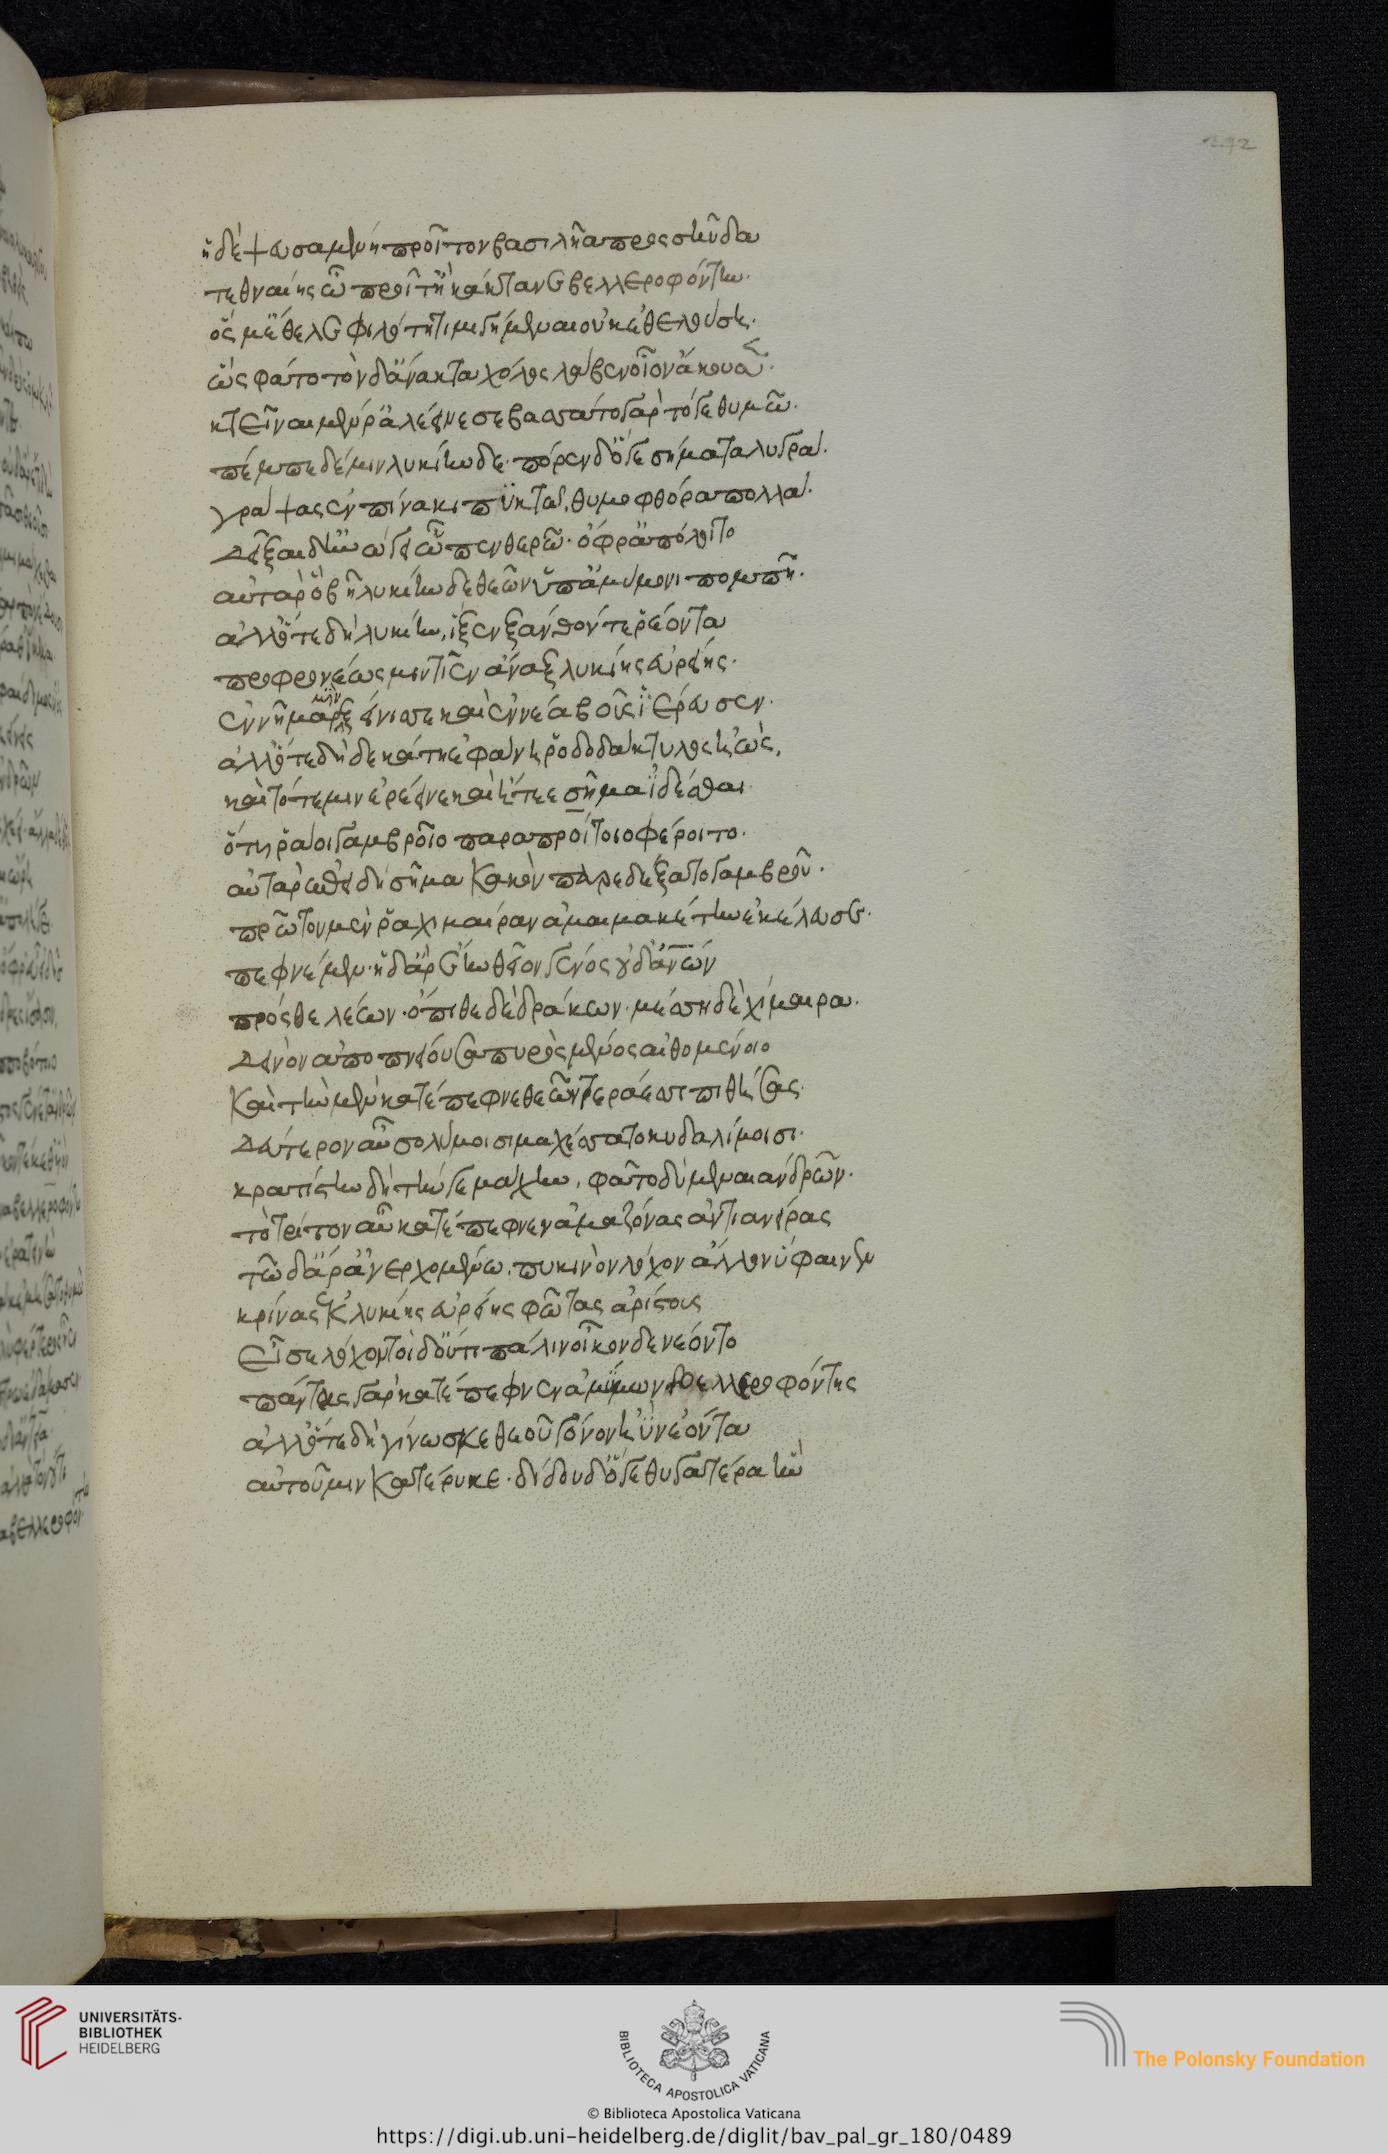 242
ἣ δὲ ψευσαμένη προῖτον βασιλῆα προς ηύδα
τεθναίης ὦ προῖτ' ἢ κάκτανε βελλεροφόντην.
ὅς μ' ἔθελε φιλότητι μιγήμεναι οὐκ ἐθελούση.
ὣς φάτο τὸν δ' ἄνακτα χόλος λάβεν οἷον ἄκουσε.
κτεῖναι μέν ῥ' ἀλέεινε σεβάσσατο γὰρ τόγε θυμῶ.
πέμπε δέ μιν λυκίην δε. πόρεν δ' ὅγε σήματα λυγρά.
γράψας ἐν πίνακι πτυκτῶ, θυμοφθόρα πολλά.
δεῖξαι δ' ἠνώγει ὧ πενθερῶ. ὄφρ' ἀπόλοιτο
αὐτὰρ ὃ βῆ λυκίην δε θεῶν ὑπ' ἀμύμονι πομπῆ.
ἀλλ' ὅτε δὴ λυκίην, ἷξεν ξάνθον τε ῥέοντα
προφρονέως μιν τῖεν ἄναξ λυκίης εὐρείης.
ἐννῆμαρ ξείνισσε καὶ ἐννέα βοῦς ἱέρευσεν.
ἀλλ' ὅτε δὴ δεκάτη ἐφάνη ῥοδοδάκτυλος ἠώς,
καὶ τότε μιν ἐρέεινε καὶ ἤτεε σῆμα ἰδέσθαι
ὅττι ῥά οἱ γαμβροῖο παρα προίτοιο φέροιτο.
αὐτὰρ ἐπεὶ δὴ σῆμα κακὸν παρεδέξατο γαμβροῦ.
πρῶτον μέν ῥα χίμαιραν ἀμαιμακέτην ἐκέλευσε.
πεφνέμεν. ἣ δ' ἄρ' ἔην θεῖον γένος οὐδ' ἀνθρώπων
πρόσθε λέων. ὄπιθε δὲ δράκων. μέσση δὲ χίμαιρα.
δεινὸν ἀποπνείουσα πυρὸς μένος αἰθομένοιο
καὶ τὴν μὲν κατέπεφνε θεῶν τεράεσσι πιθήσας.
δεύτερον αὖ σολύμοισι μαχέσσατο κυδαλίμοισι.
καρτίστην δὴ τήνγε μάχην, φάτο δύμεναι ἀνδρῶν.
τὸ τρίτον αὖ κατέπεφνεν ἀμαζόνας ἀντιανείρας
τῶ δ' ἄρ' ἀνερχομένω. πυκινὸν λόχον ἄλλον ὕφαινεν
κρίνας ἐκ λυκίης εὐρείης φῶτας ἀρίστους
εἷσε λόχον τοὶ δ' οὔτι πάλιν οἶκον δε νέοντο
πάντας γὰρ κατέπεφνεν ἀμύμων βελλεροφόντης
ἀλλ' ὅτε δὴ γίνωσκε θεοῦ γόνον ἠῢν ἐόντα
αὐτοῦ μιν κατέρυκε. δίδου δ' ὅγε θυγατέρα ἥν
UNIVERSITÄTS-
BIBLIOTHEK
HEIDELBERG
BIBLIOTECA APOSTOLICA VATICANA
The Polonsky Foundation
© Biblioteca Apostolica Vaticana
https://digi.ub.uni-heidelberg.de/diglit/bav_pal_gr_180/0489